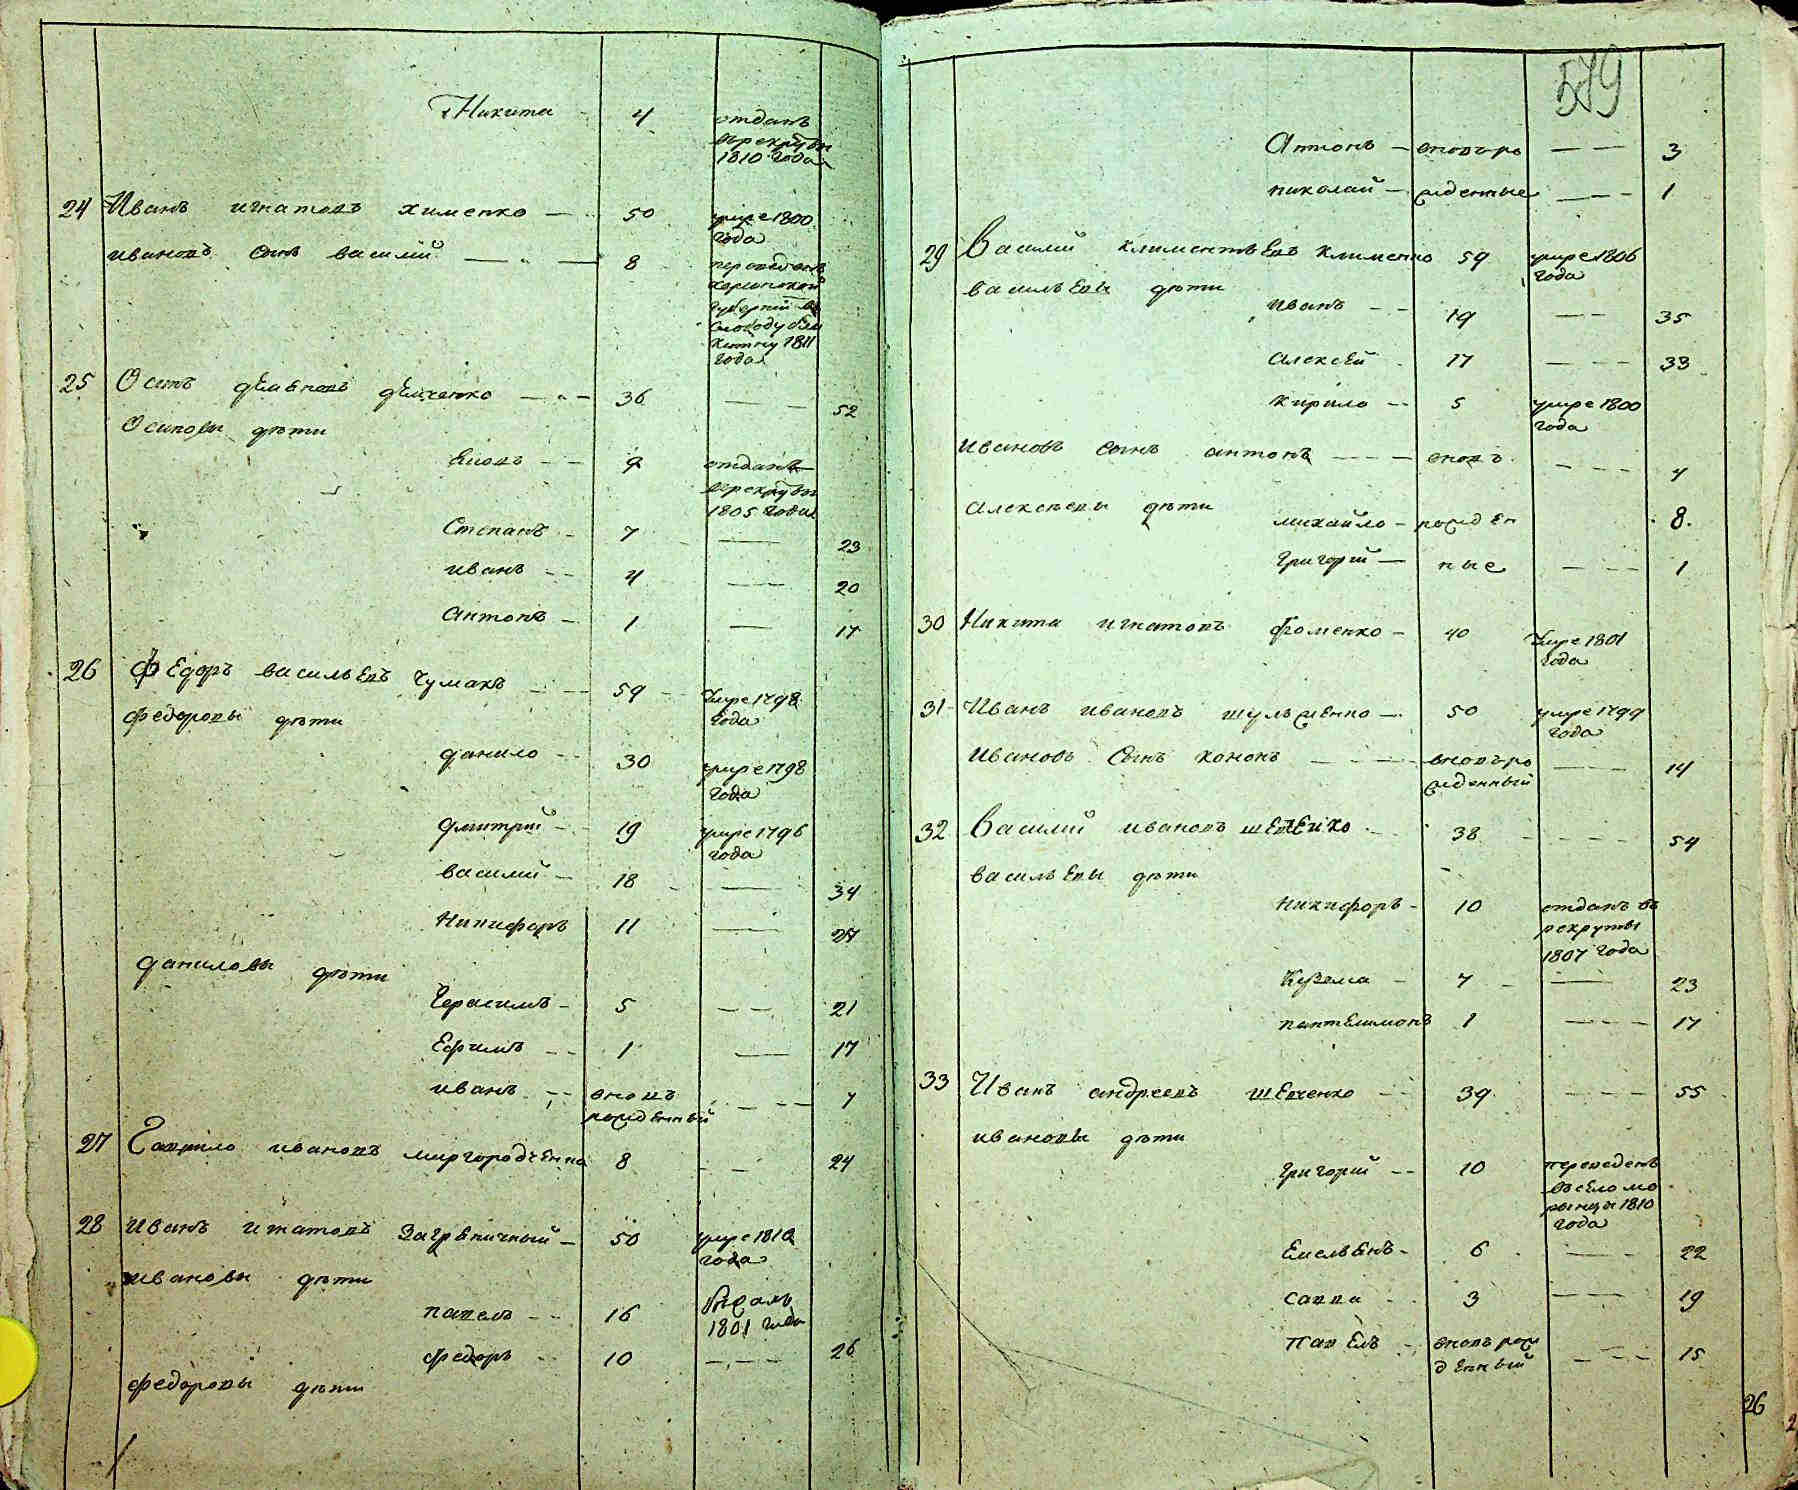 Никита - 4 отданъ
въ рекруты
1810 года
24 Иванъ игнатовъ хименко — 50 умре 1800
года
ивановъ сынъ василий — 8 переведенъ
херсонской
губернии въ
слободу
1811
года
25 Осипъ демяновъ демченко — 36 — — 52
Осиповы дети
9 отданъ
въ рекруты
1805 года
Степанъ - 7 — 23
иванъ - - 4 — 20
антонъ - 1 — 17
26 Федоръ васильевъ чумакъ - - 59 - умре 1798
года
федоровы дети
данило - - 30 умре 1798
года
дмитрий - 19 умре 1796
года
василий - 18 — 34
никифоръ 11 — 27
даниловы дети
Герасимъ - 5 — — 21
Ефимъ - - 1 — 17
иванъ - - вновь
рожденный - - - 7
27 Гаврило ивановъ миргородченко 8 - - 24
28 иванъ игнатовъ Загреничный - 50 умре 1810
года
ивановы дети
павелъ - - 16 бежалъ
1801 года
федоръ - - 10 - - - 26
федоровы дети
579
Антонъ - вновь ро — — 3
николай - жденные — - 1
29 Василий климентьевъ клименко 59 умре 1806
года
васильевы дети
иванъ - - 19 — — 35
алексей - 17 — - 33
кирило - - 5 умре 1800
года
ивановъ сынъ антонъ - - - вновь - - - 4
алексеевы дети
михайло - рожден 8
григорий — ные — - - 1
30 Никита игнатовъ фоменко - 40 умре 1801
года
31 Иванъ ивановъ шульженко — 50 умре 1799
года
ивановъ сынъ кононъ - - - вновь ро
жденный — — 14
32 Василий ивановъ шевенко - 38 - - - 54
васильевы дети
никифоръ - 10 отданъ въ
рекруты
1807 года
Кузема - 7 - — 23
пантелимонъ 1 — - - 17
33 Иванъ андреевъ шевченко - - 39 - - - 55
ивановы дети
григорий - - 10 переведенъ
въ село мо
ринци 1810
года
Емельянъ - 6 - — - 22
савва - 3 — - - 19
павелъ - вновь рож
денный — - - 15
26